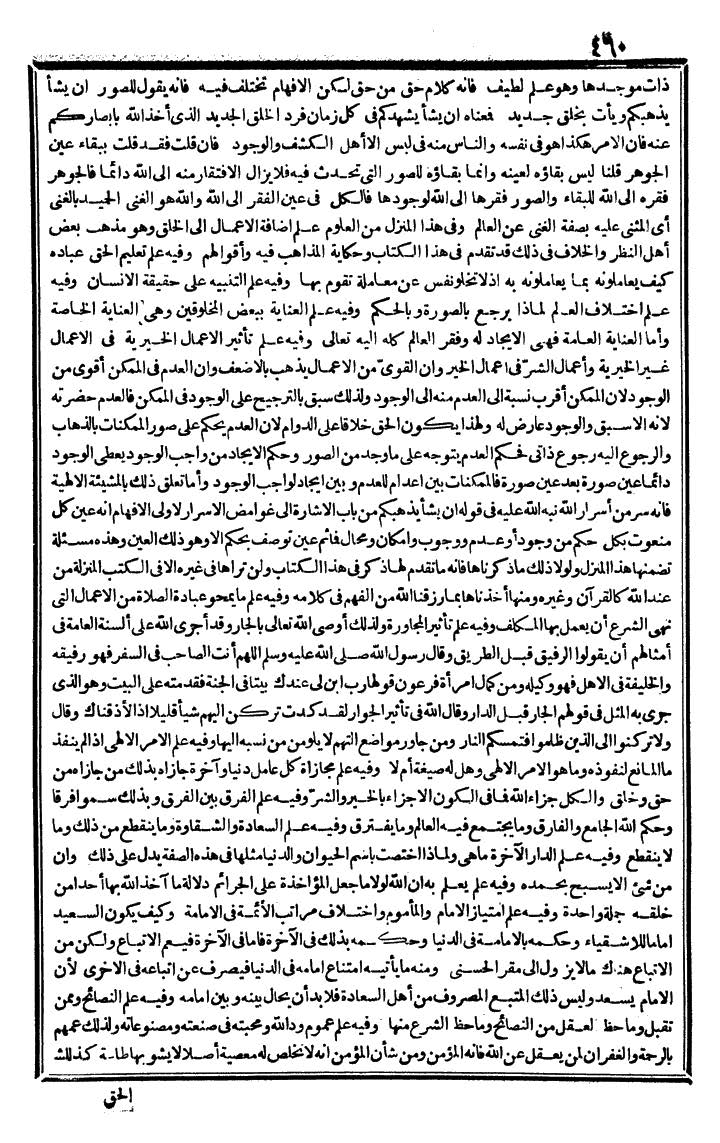 ٤٦٠
ذات موجدها وهو علم لطيف فانه كلام حق من حق لكن الافهام تختلف فيه فانه يقول للصور ان يشأ
يذهبكم ويأت بخلق جديد فعناه ان يشأ يشهدكم فى كل زمان فرد الخلق الجديد الذى أخذ الله بابصاركم
عنه فان الامر هكذا هو فى نفسه والناس منه فى لبس الا أهل الكشف والوجود فان قلت فقد قلت ببقاء عين
الجوهر قلنا ليس بقاؤه لعينه وانما بقاؤه للصور التى تحدث فيه فلا يزال الافتقار منه الى الله دائما فالجوهر
فقره الى الله للبقاء والصور فقرها الى الله لوجودها فالكل فى عين الفقر الى الله والله هو الغنى الحميد بالغنى
أى المثنى عليه بصفة الغنى عن العالم وفى هذا المنزل من العلوم علم اضافة الاعمال الى الخلق وهو مذهب بعض
أهل النظر والخلاف فى ذلك قد تقدم فى هذا الكتاب وحكاية المذاهب فيه وأقوالهم وفيه علم تعليم الحق عباده
كيف يعاملونه بما يعاملونه به اذ لا تخلو نفس عن معاملة تقوم بها وفيه علم التنبيه على حقيقة الانسان وفيه
علم اختلاف العالم لماذا يرجع بالصورة وبالحكم وفيه علم العناية ببعض المخلوقين وهى العناية الخاصة
وأما العناية العامة فهى الايجاد له وفقر العالم كله اليه تعالى وفيه علم تأثير الاعمال الخيرية فى الاعمال
غير الخيرية وأعمال الشر فى اعمال الخير وان القوى من الاعمال يذهب بالاضعف وان العدم فى الممكن أقوى من
الوجود لان الممكن أقرب نسبة الى العدم منه الى الوجود ولذلك سبق بالترجيح على الوجود فى الممكن فالعدم حضرته
لانه الاسبق والوجود عارض له ولهذا يكون الحق خلاقا على الدوام لان العدم يحكم على صور الممكنات بالذهاب
والرجوع اليه رجوع ذاتى فحكم العدم يتوجه على ما وجد من الصور وحكم الايجاد من واجب الوجود يعطى الوجود
دائما عين صورة بعد عين صورة فالممكنات بين اعدام للعدم وبين ايجاد لواجب الوجود وأما تعلق ذلك بالمشيئة الالهية
فانه سر من أسرار الله نبه الله عليه فى قوله ان يشأ يذهبكم من باب الاشارة الى غوامض الاسرار لاولى الافهام انه عين كل
منعوت بكل حكم من وجود أو عدم ووجوب وامكان ومحال فما ثم عين توصف بحكم الا وهو ذلك العين وهذه مسئلة
تضمنها هذا المنزل ولولا ذلك ما ذكرناها فانه ما تقدم لها ذكر فى هذا الكتاب ولن تراها فى غيره الا فى الكتب المنزلة من
عند الله كالقرآن وغيره ومنها أخذناها بما رزقنا الله من الفهم فى كلامه وفيه علم ما يمحو عبادة الصلاة من الاعمال التى
نهى الشرع أن يعمل بها المكلف وفيه علم تأثير المجاورة ولذلك أوصى الله تعالى بالجار وقد أجرى الله على ألسنة العامة فى
أمثالهم أن يقولوا الرفيق قبل الطريق وقال رسول الله صلى الله عليه وسلم اللهم أنت الصاحب فى السفر فهو رفيقه
والخليفة فى الاهل فهو وكيله ومن كمال امرأة فرعون قولها رب ابن لى عندك بيتا فى الجنة فقدمته على البيت وهو الذى
جرى به المثل فى قولهم الجار قبل الدار وقال الله فى تأثير الجوار لقد كدت تركن اليهم شيأ قليلا اذا لأذقناك وقال
ولا تركنوا الى الذين ظلموا فتمسكم النار ومن جاور مواضع التهم لا يلومن من نسبه اليها وفيه علم الامر الالهى اذا لم ينفذ
ما المانع لنفوذه وما هو الامر الالهى وهل له صيغة أم لا وفيه علم مجازاة كل عامل دنيا وآخرة جازاه بذلك من جازاه من
حق وخلق والكل جزاء الله فما فى الكون الا جزاء بالخير والشر وفيه علم الفرق بين الفرق وبذلك سموا فرقا
وحكم الله الجامع والفارق وما يجتمع فيه العالم وما يفترق وفيه علم السعادة والشقاوة وما ينقطع من ذلك وما
لا ينقطع وفيه علم الدار الآخرة ماهى ولماذا اختصت باسم الحيوان والدنيا مثلها فى هذه الصفة يدل على ذلك وان
من شئ الا يسبح بحمده وفيه علم يعلم به ان الله لولا ما جعل المؤاخذة على الجرائم دلالة ما آخذ الله بها أحدا من
خلقه جملة واحدة وفيه علم امتياز الامام والمأموم واختلاف مراتب الأئمة فى الامامة وكيف يكون السعيد
اماما للاشقياء وحكمه بالامامة فى الدنيا وحكمه بذلك فى الآخرة فاما فى الآخرة فيعم الاتباع ولكن من
الاتباع هناك ما لا يزول الى مقر الحسنى ومنه ما يأتيه امتناع امامه فى الدنيا فيصرف عن اتباعه فى الاخرى لأن
الامام يسعد وليس ذلك المتبع المصروف من أهل السعادة فلا بد أن يحال بينه وبين امامه وفيه علم النصائح وممن
تقبل وما حظ لعقل من النصائح وما حظ الشرع منها وفيه علم عموم ود الله ومحبته فى صنعته ومصنوعاته ولذلك عمهم
بالرحمة والغفران لمن يعقل عن الله فانه المؤمن ومن شأن المؤمن انه لا تخلص له معصية أصلا لا يشوبها طاعة كذلك
الحق